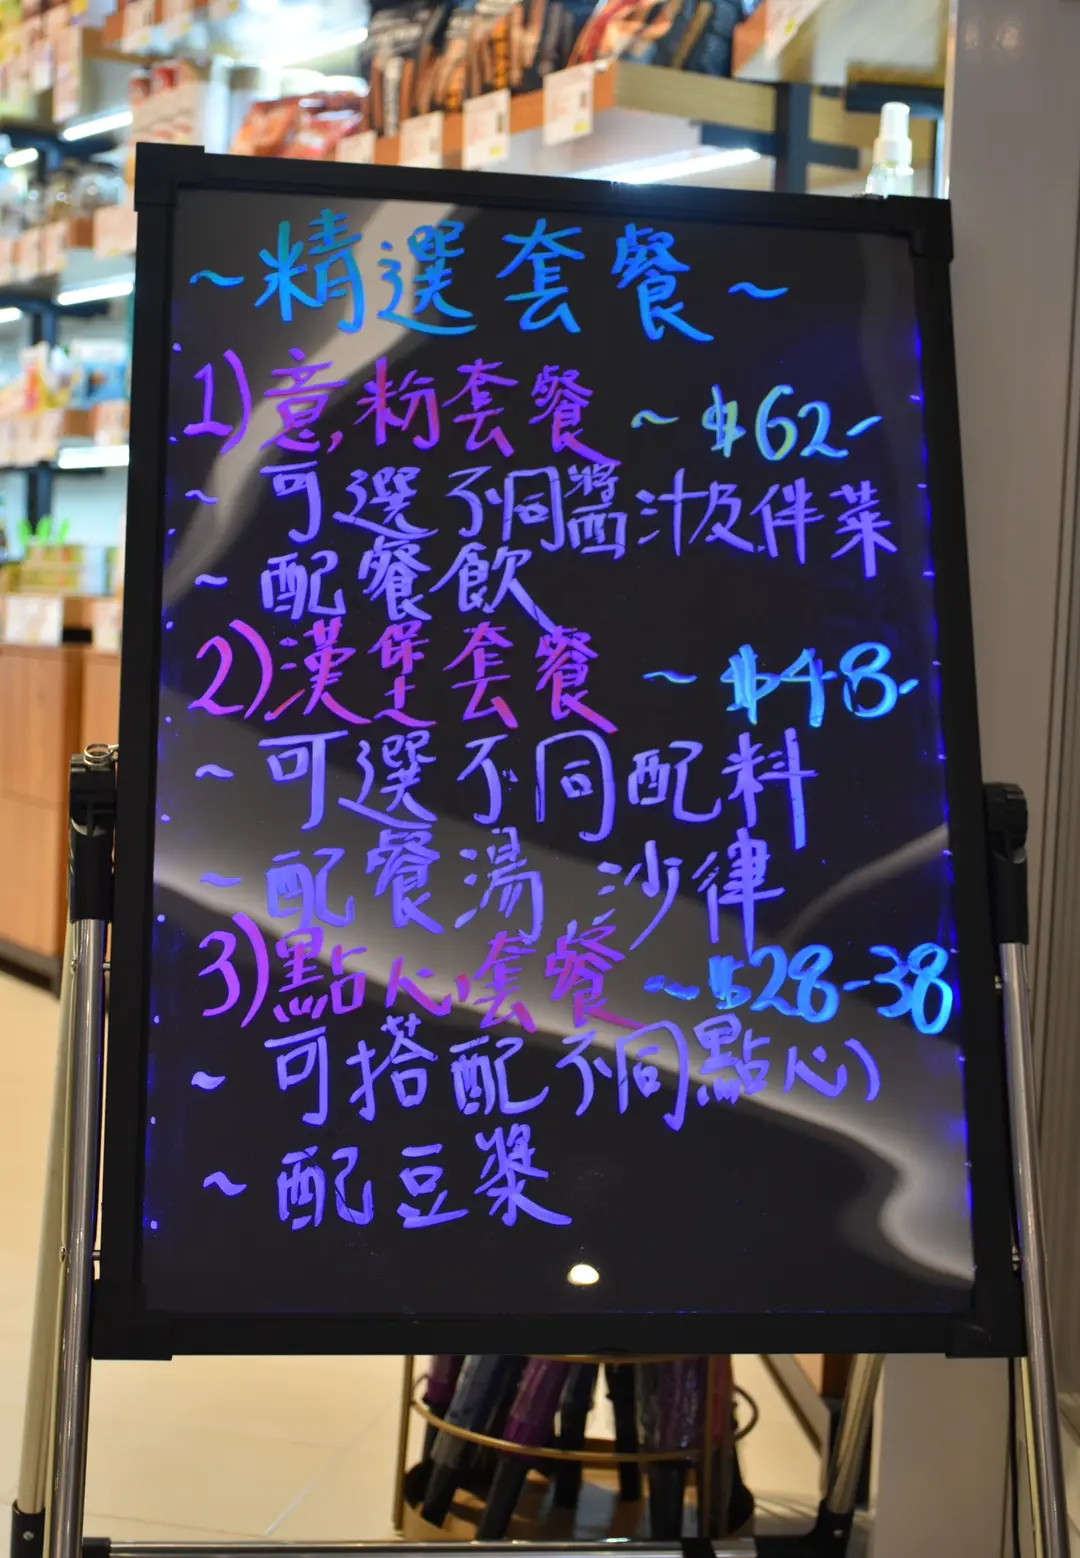 ~精選套餐~
1)意粉套餐 ~$62-
~可選不同醬汁及伴菜
~配餐飲
2)漢堡套餐 ~$48-
~可選不同配料
~配餐湯 沙律
3)點心套餐 ~$28-38
~可搭配不同點心)
~配豆漿